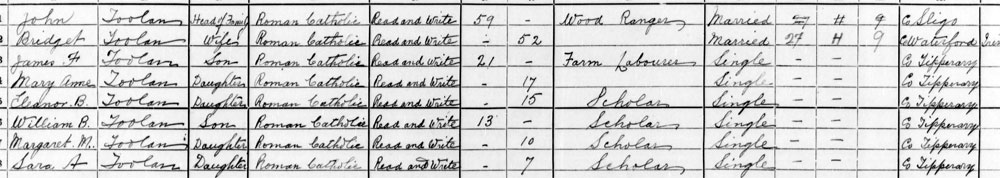 John Toolan Head of Family Roman Catholic Read and Write 59 - Wood Ranger Married 27 4 9 Co Sligo
2 Bridget Toolan Wife Roman Catholic Read and Write - 52 Married 27 4 9 Co Waterford
3 James F Toolan Son Roman Catholic Read and Write 21 - Farm Labourer Single - - Co Tipperary
4 Mary Anne Toolan Daughter Roman Catholic Read and Write - 17 Single - - Co Tipperary
5 Eleanor B. Toolan Daughter Roman Catholic Read and Write - 15 Scholar Single - - Co Tipperary
6 William B. Toolan Son Roman Catholic Read and Write 13 - Scholar Single - - Co Tipperary
7 Margaret M. Toolan Daughter Roman Catholic Read and Write - 10 Scholar Single - - Co Tipperary
8 Sara A Toolan Daughter Roman Catholic Read and Write - 7 Scholar Single - - Co Tipperary